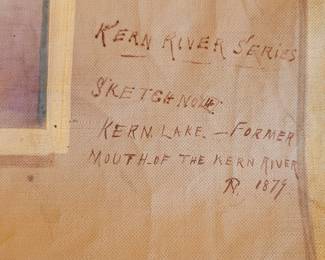 KERN RIVER SERIES
SKETCH NO.
KERN. LAKE. — FORMER
MOUTH-OF THE KERN RIVER
1879